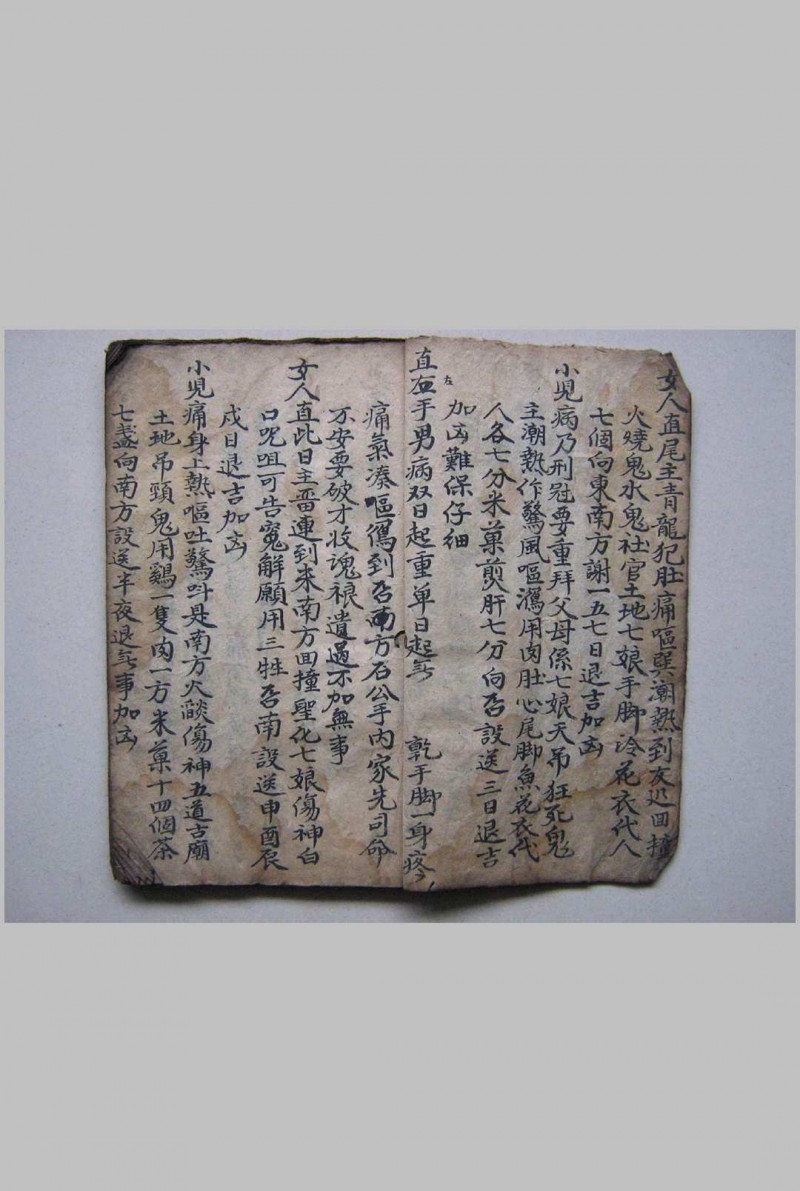 女人直尾主青龍犯肚痛嘔與潮熱到灰迟回撞
火燒鬼水鬼社官土地七娘手脚冷花衣代人
七個向東南方謝一五七日退吉加凶
小児病乃刑冠要重拜父母係七娘天吊狂死鬼
主潮熱作驚風嘔瀉用肉肚心尾脚魚花衣代
人各七分米菓煎肝七分向西設送三日退吉
加凶難保仔細
直左手男病双日起重单日起無 乾手脚一身疼
痛氣凑嘔瀉到西南方石公手内家先司命
不安要破才收魂禳遣過不加無事
女人直此日主連到来南方回撞聖化七娘傷神白
口咒咀可告解願用三牲西南設送申酉辰
戌日退吉加凶
小児痛身上熱嘔吐驚呌是南方火燄傷神五道古廟
土地吊頸鬼用鷄一隻肉一方米菓十四個茶
七盞向南方設送半夜退無事加凶